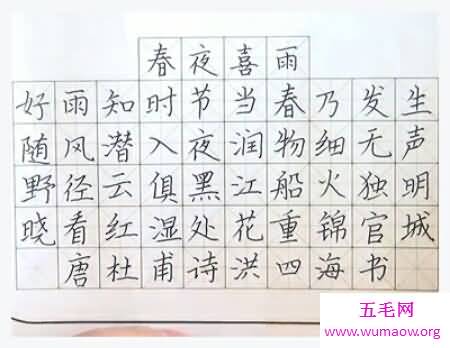 春夜喜雨
好雨知时节当春乃发生
随风潜入夜润物细无声
野径云俱黑江船火独明
晓看红湿处花重锦官城
唐杜甫诗洪四海书
五毛网
www.wumaow.org